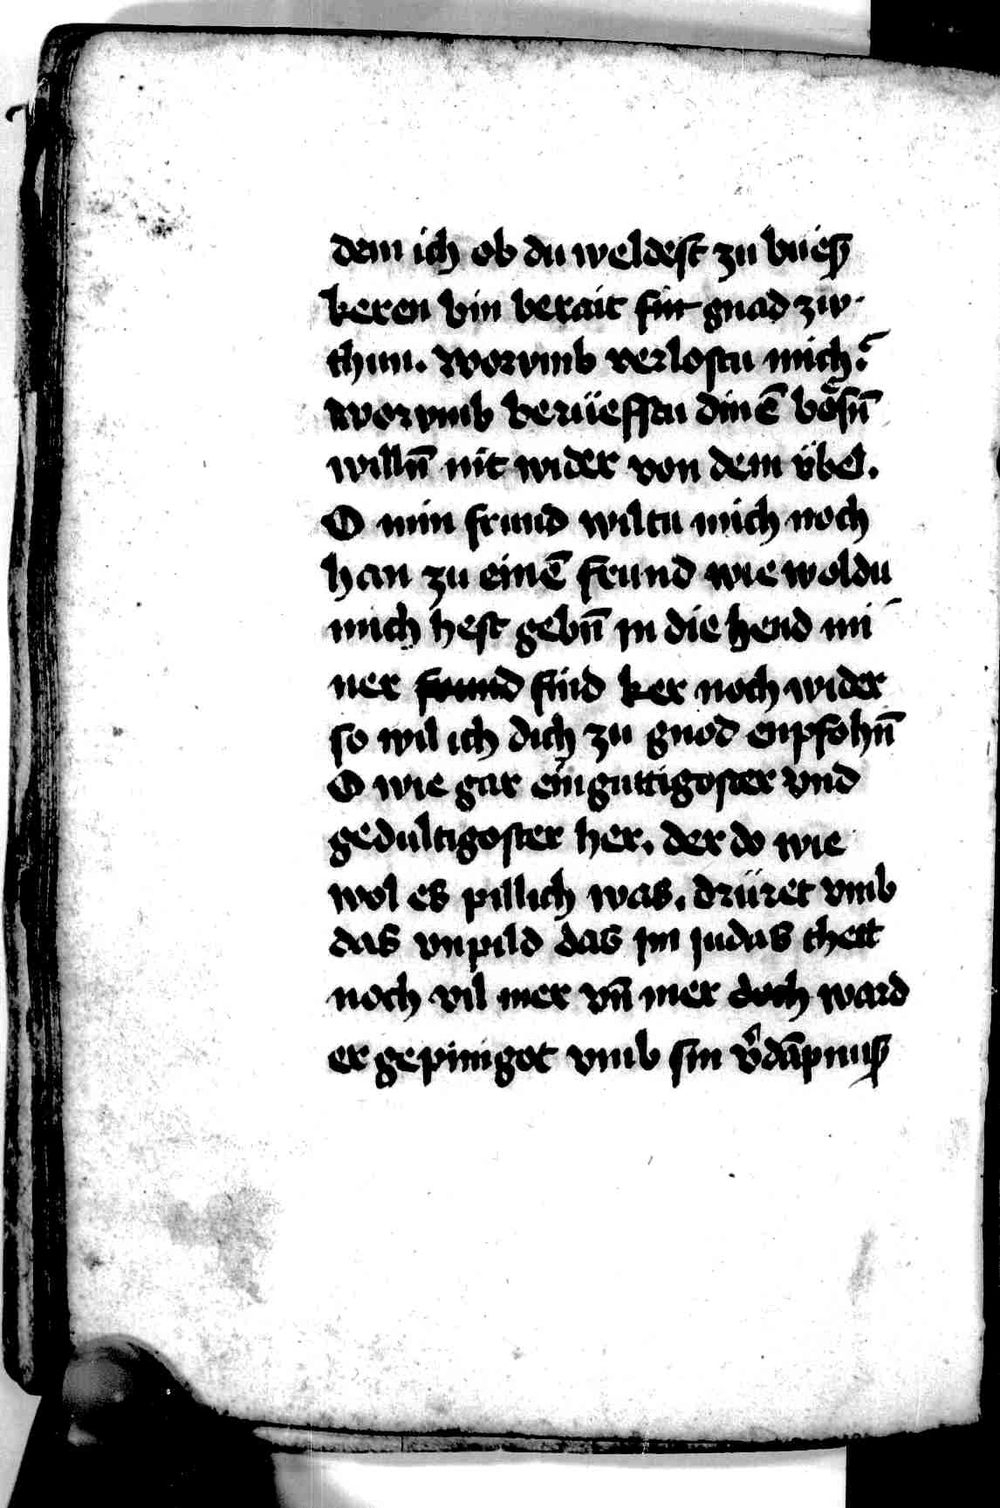 dem ich ob du weldest zu buess
keren bin berait sin gnad zw
thun. worvmb verlostu mich?
worvmb berüefstu dinē bo̎sn̄
willn̄ nit wider von dem v̈bel.
O min frund wiltu mich noch
han zu einē frund wie woldu
mich hest gebn̄ jn die hend mi
ner frund find ker noch wider
so wil ich dich zu gnod enpfohn̄
O wie gar ein guttigoster vnd
gedultigoster her. der do wie
wol es pillich was. drüret vmb
das vnpild das jm judas thett
noch vil mer vn̄ mer doch ward
er gepinigot vmb sin v̓dāpnuss